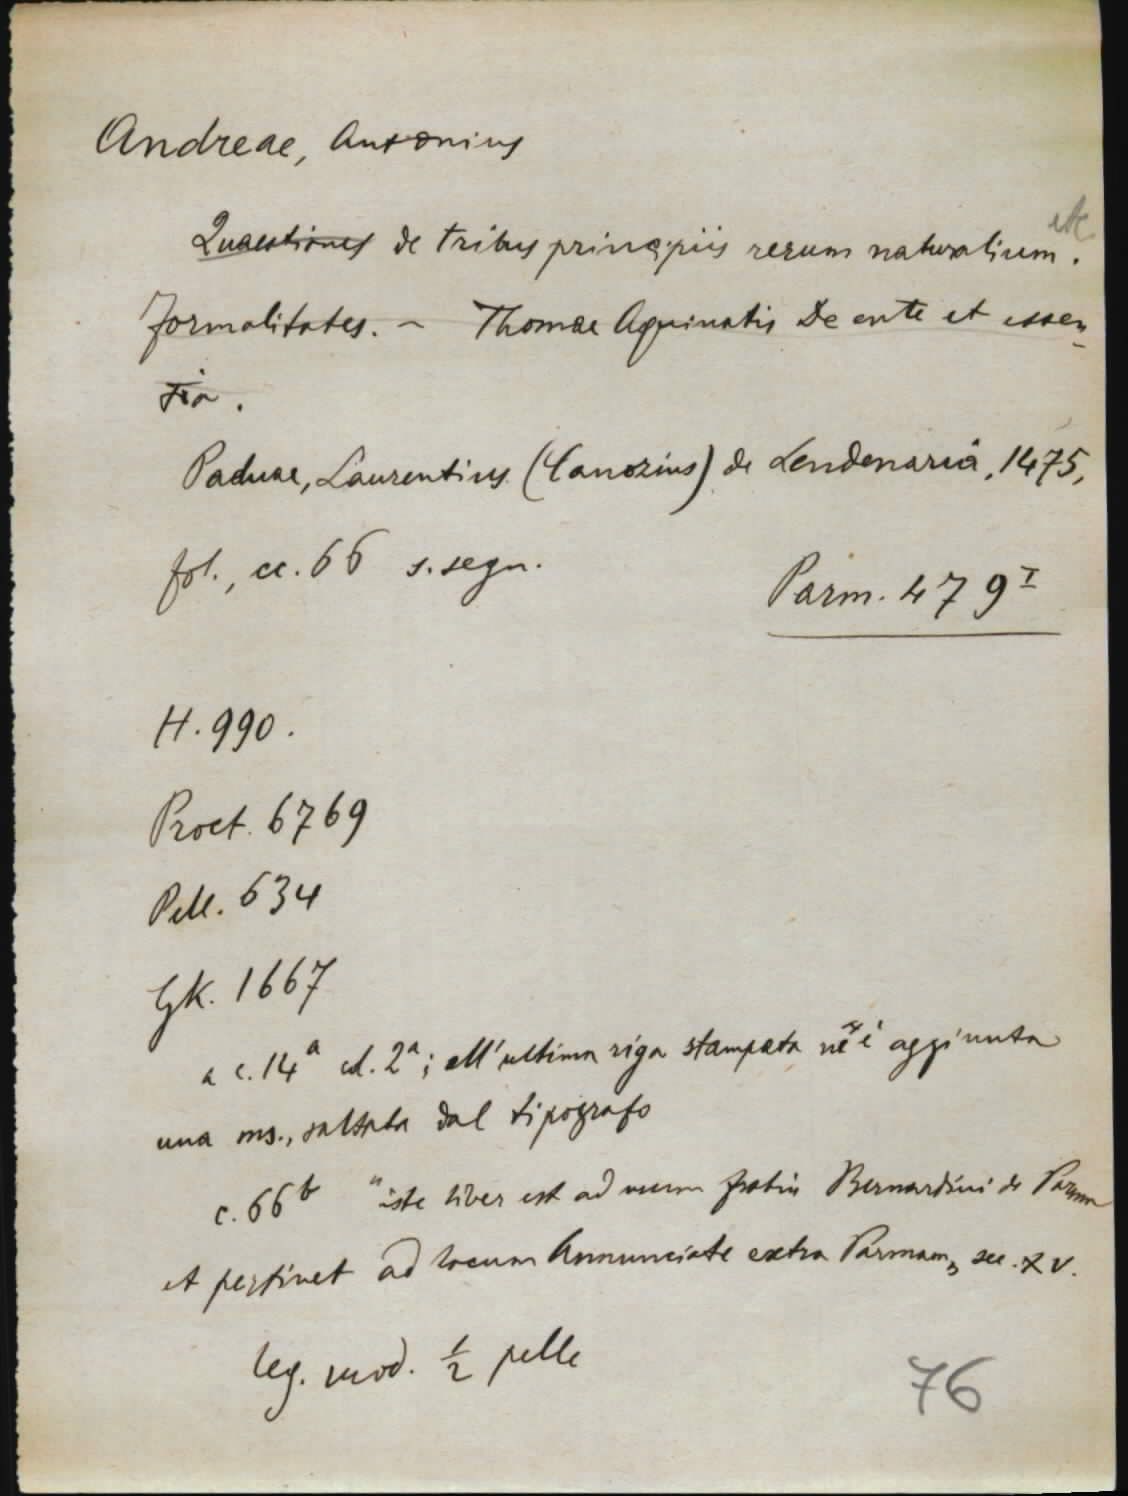 Andreae, Antonius
Quaestiones de tribus principiis rerum naturalium. etc.
Formalitates. – Thomae Aquinatis De ente et essen-
tia.
Paduae, Laurentius (Canozius) de Lendenaria, 1475,
fol., cc. 66 s. segn.
Parm. 479 I
H. 990.
Proct. 6769
Pell. 634
GK. 1667
a c. 14a col. 2a; all'ultima riga stampata ne è aggiunta
una ms., saltata dal tipografo
c. 66b "iste liber est ad usum fratris Bernardini de Parma
et pertinet ad locum Annunciate extra Parmam" sec. XV.
leg. mod. 1/2 pelle
76